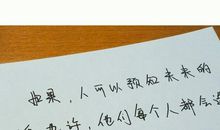 如果，人可以预知未来的
许，他们每个人都会